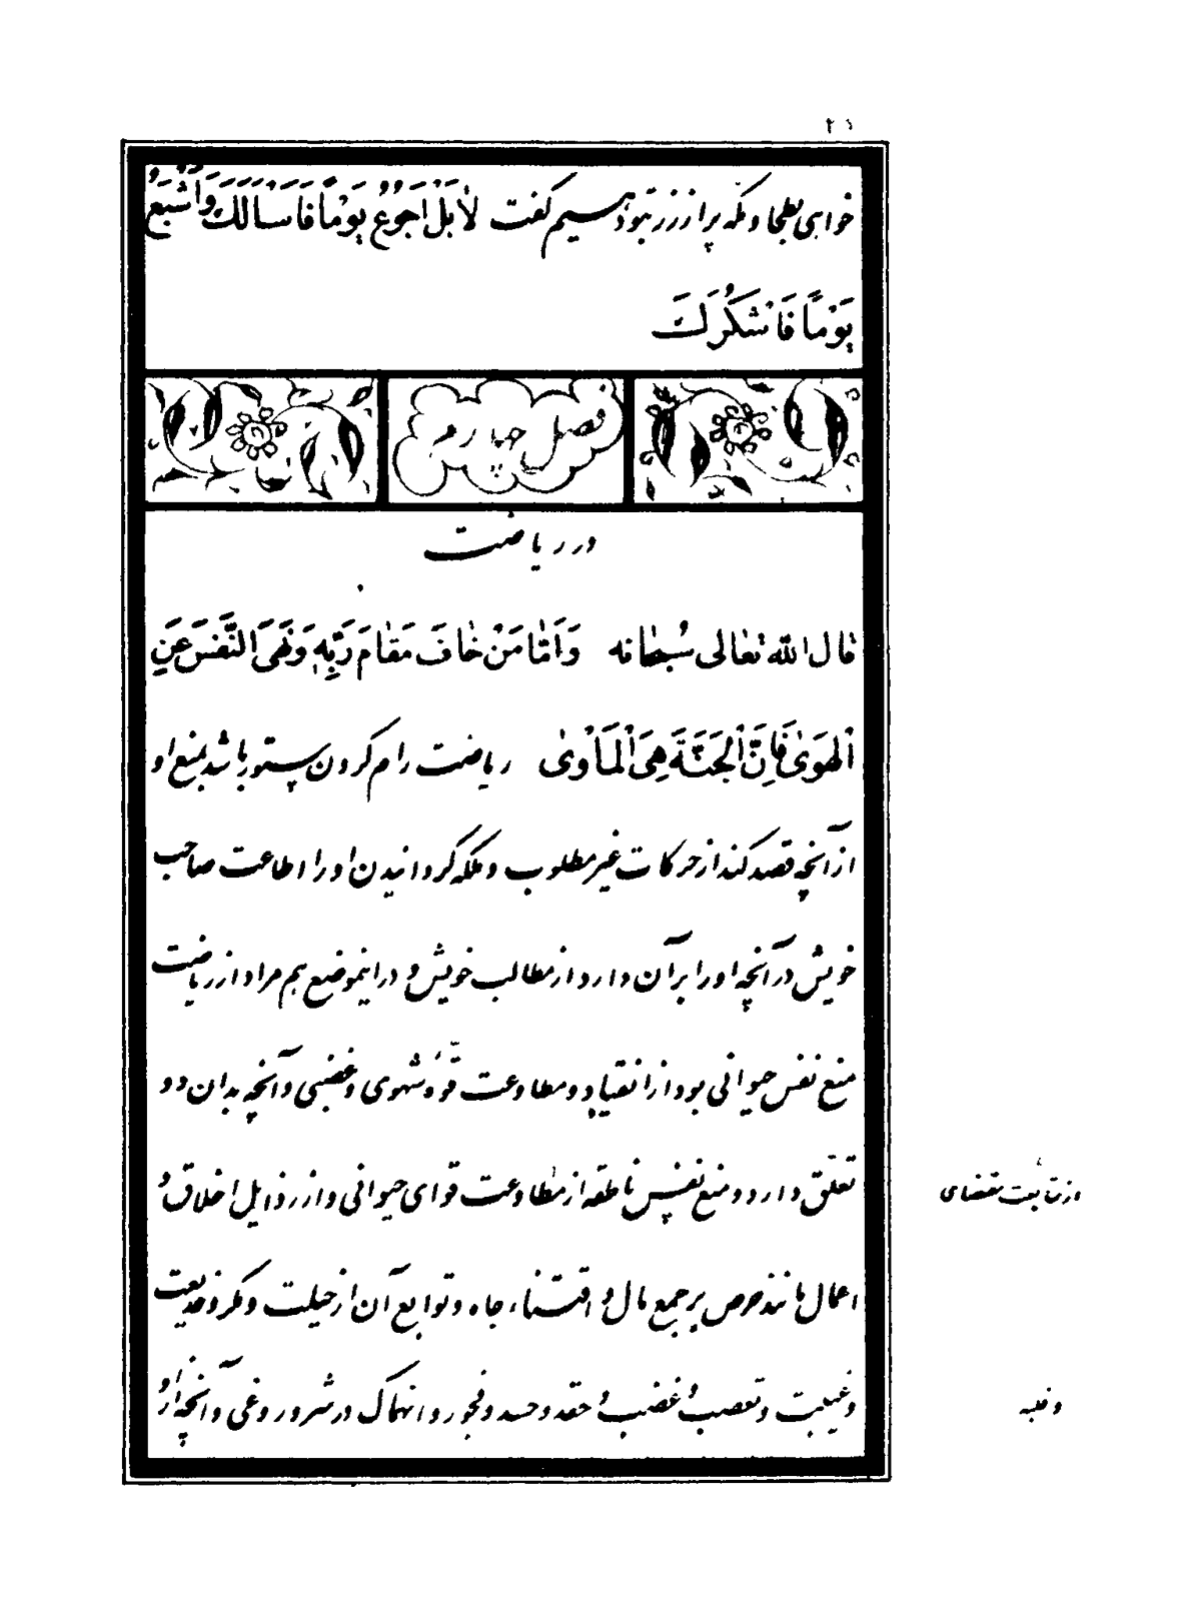 ۲۱
خواهی بطحا و مکه پر از زر بتو دهیم گفت لَا بَلْ اَجُوعُ يَوْمًا فَاَسْاَلَكَ وَاَشْبَعُ
يَوْمًا فَاَشْكُرَكَ
فصل چهارم
در ریاضت
قال الله تعالی سُبحانه وَاَمَّا مَنْ خَافَ مَقَامَ رَبِّهِ وَنَهَى النَّفْسَ عَنِ
الْهَوَىٰ فَاِنَّ الْجَنَّةَ هِىَ الْمَأْوىٰ ریاضت رام کردن ستور باشد بمنع او
از آنچه قصد کند از حرکات غیر مطلوب و ملکه گردانیدن او را اطاعت صاحب
خویش در آنچه او را بر آن دارد از مطالب خویش و در اینموضع هم مراد از ریاضت
منع نفس حیوانی بود از انقیاد و مطاوعت قوّه شهوی و غضبی و آنچه بدان دو
تعلّق دارد و منع نفس ناطقه از مطاوعت قوای حیوانی و از رذایل اخلاق و
از متابعت مقتضای
اعمال مانند حرص بر جمع مال و اقتناء جاه و توابع آن از حیلت و مکر و خدیعت
و غیبت و تعصب و غضب و حقد و حسد و فجور و انهماک در شرور و غی و آنچه از او
و غلبه